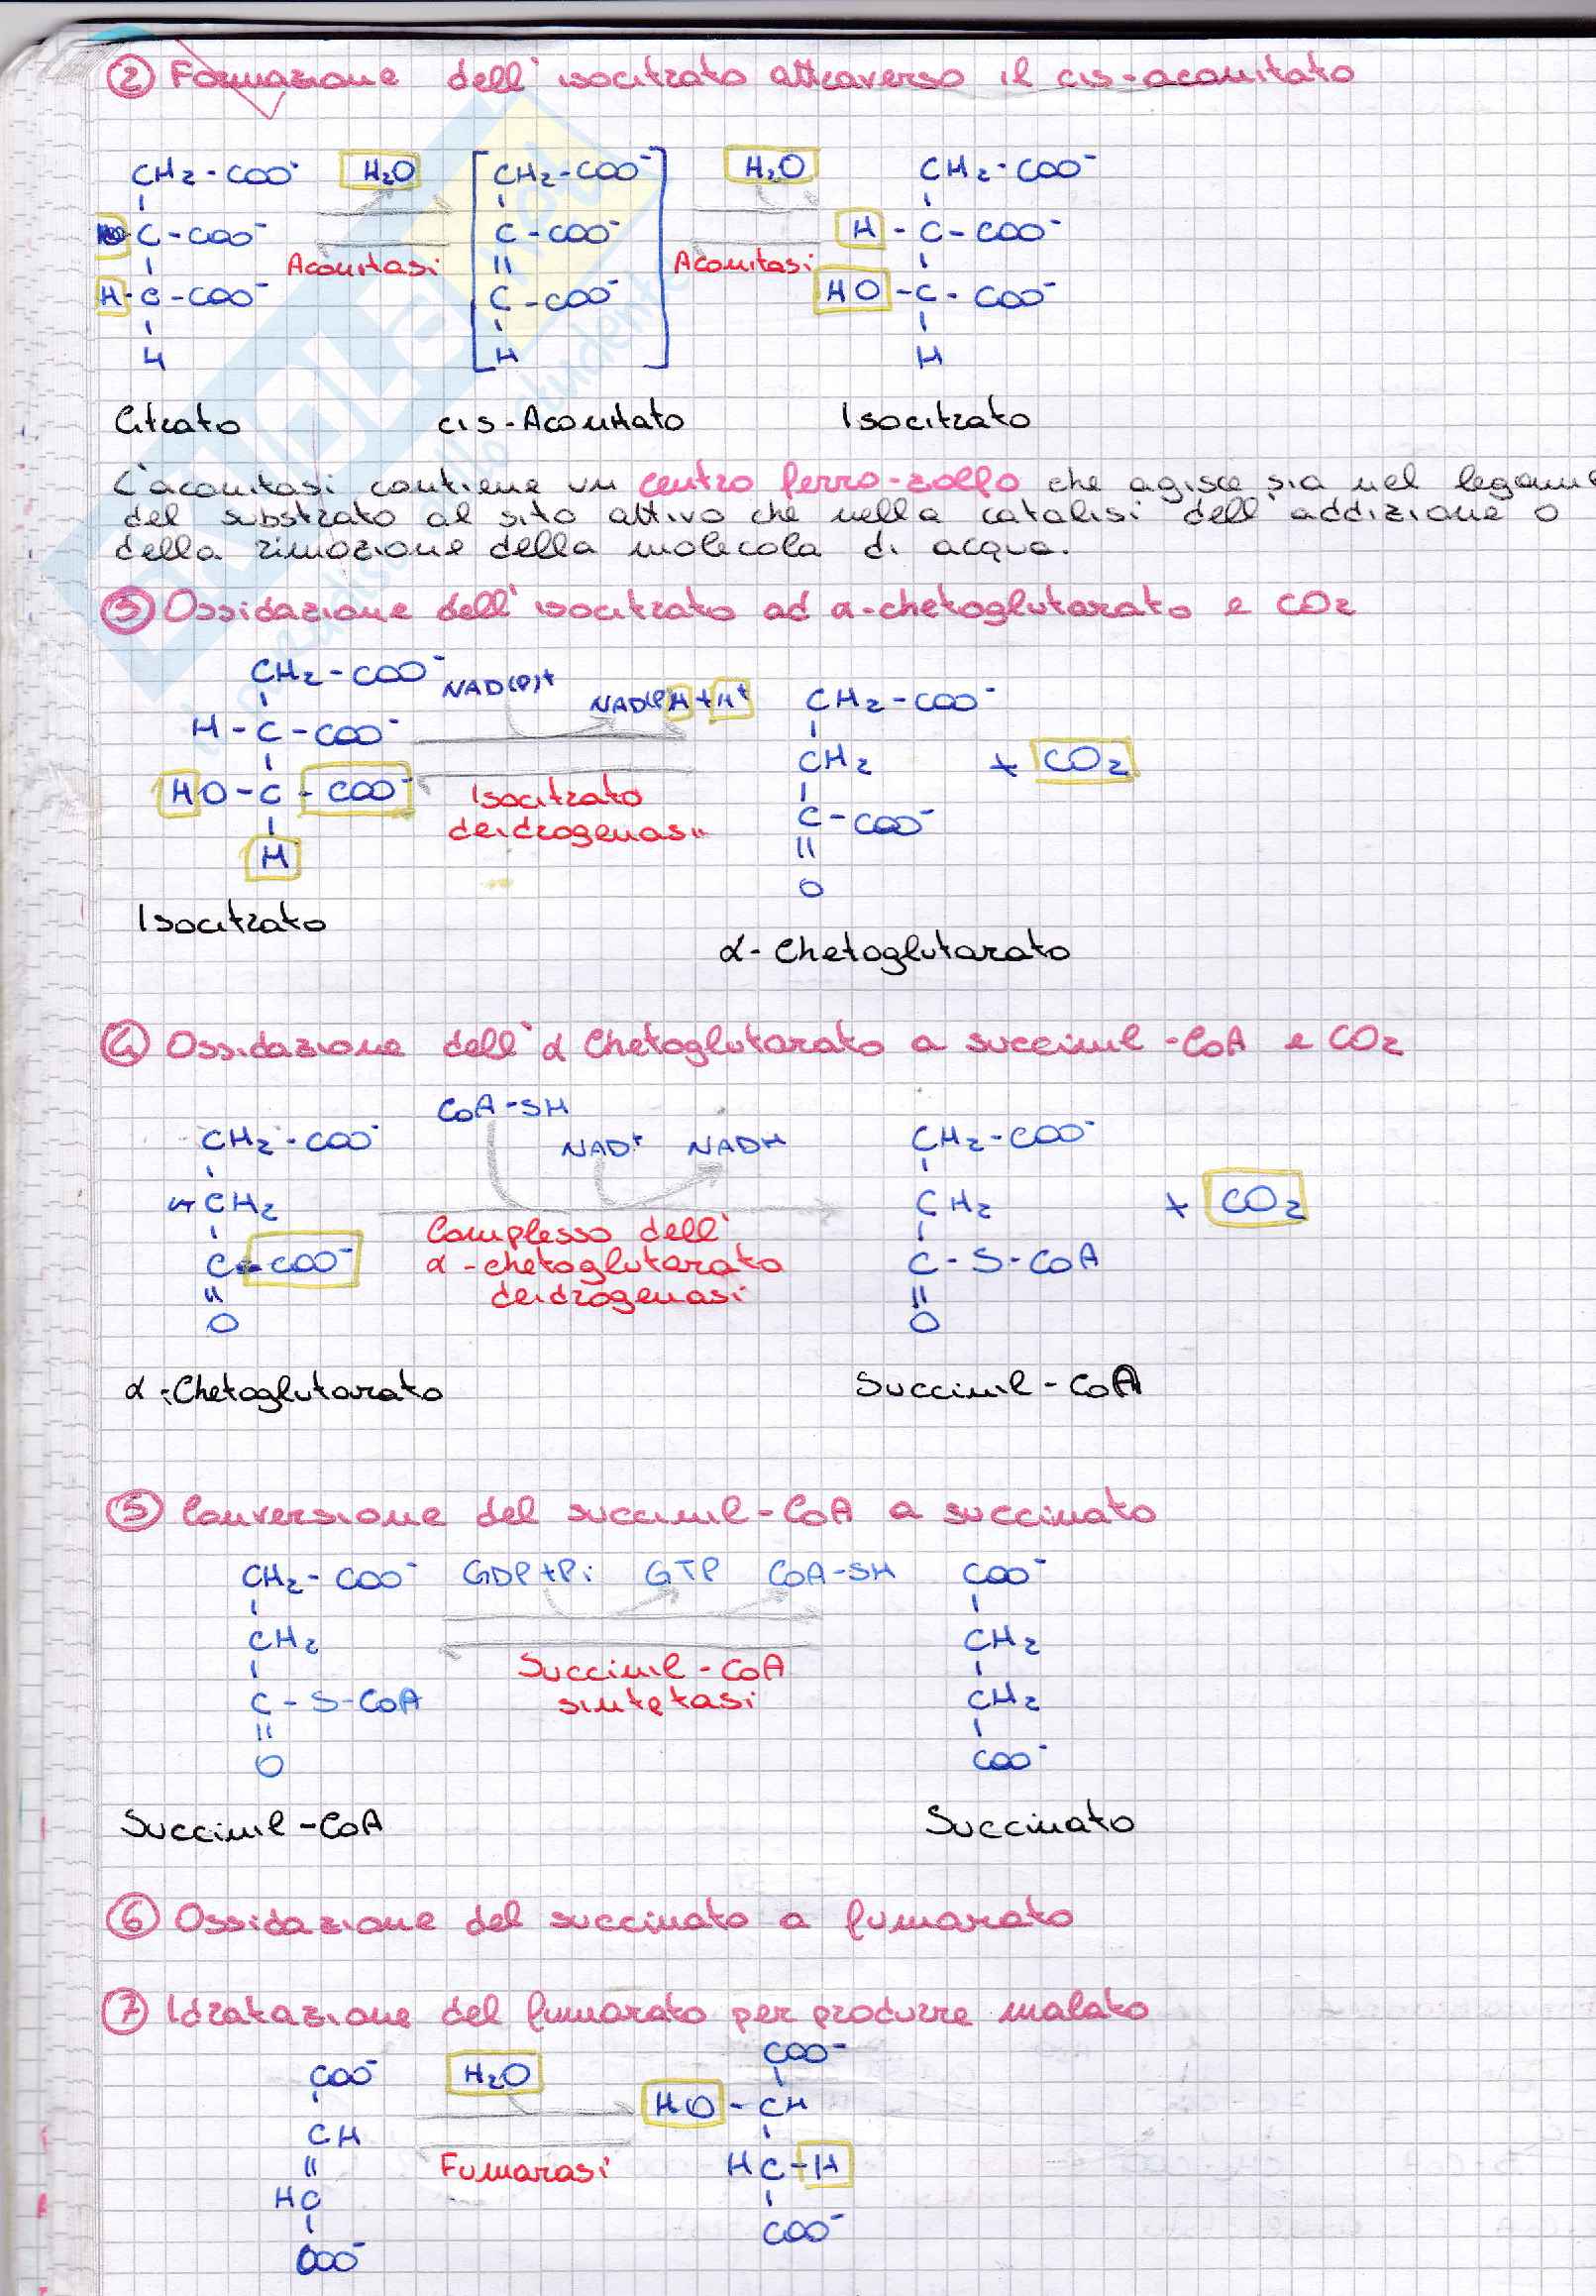 ② Formazione dell'isocitrato attraverso il cis-aconitato
CH₂-COO⁻ H₂O CH₂-COO⁻ H₂O CH₂-COO⁻
HO C-COO⁻ C-COO⁻ H-C-COO⁻
Aconitasi Aconitasi
H-C-COO⁻ C-COO⁻ HO-C-COO⁻
H H H
Citrato cis-Aconitato Isocitrato
L'aconitasi contiene un centro ferro-zolfo che agisce sia nel legame
del substrato al sito attivo che nella catalisi dell'addizione o
della rimozione della molecola di acqua.
③ Ossidazione dell'isocitrato ad α-chetoglutarato e CO₂
CH₂-COO⁻ NAD(P)⁺ NAD(P)H+H⁺ CH₂-COO⁻
H-C-COO⁻ CH₂ + CO₂
HO-C-COO⁻ Isocitrato C-COO⁻
deidrogenasi
H O
Isocitrato
α-Chetoglutarato
④ Ossidazione dell'α Chetoglutarato a succinil-CoA e CO₂
CoA-SH
CH₂-COO⁻ NAD⁺ NADH CH₂-COO⁻
CH₂ CH₂ + CO₂
Complesso dell'
C-COO⁻ α-chetoglutarato C-S-CoA
deidrogenasi
O O
α-Chetoglutarato Succinil-CoA
⑤ Conversione del succinil-CoA a succinato
CH₂-COO⁻ GDP+Pi GTP CoA-SH COO⁻
CH₂ CH₂
Succinil-CoA
C-S-CoA sintetasi CH₂
O COO⁻
Succinil-CoA Succinato
⑥ Ossidazione del succinato a fumarato
⑦ Idratazione del fumarato per produrre malato
COO⁻ H₂O COO⁻
CH HO-CH
HC Fumarasi HC-H
COO⁻ COO⁻